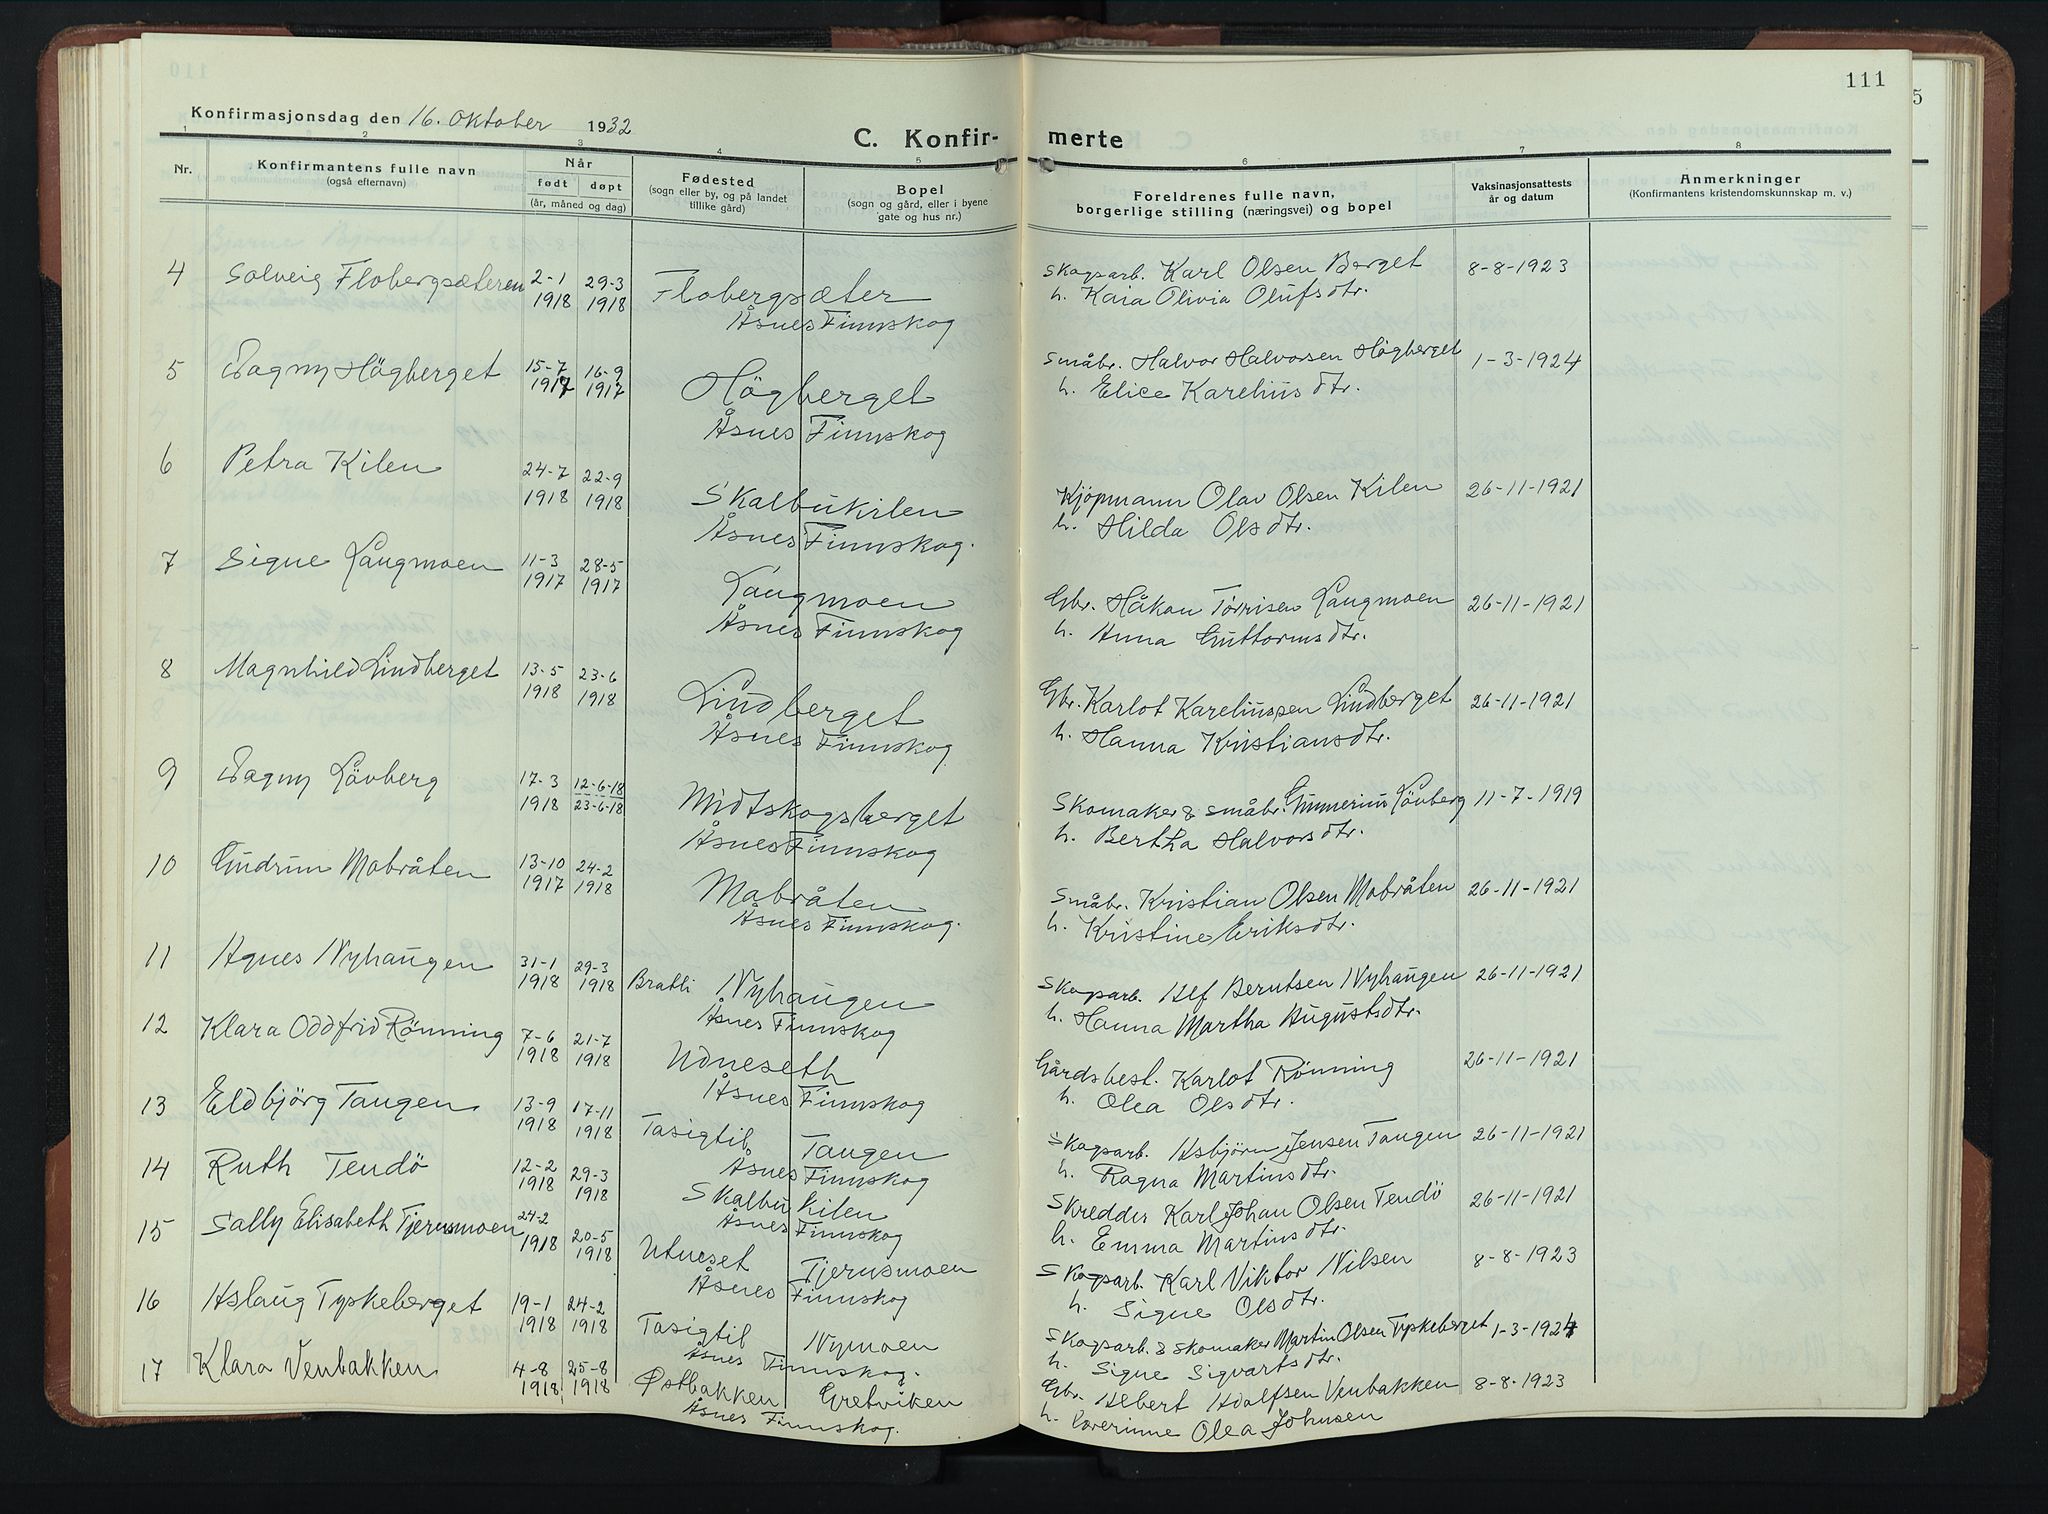 111
Konfirmasjonsdag den 16. Oktober 1932
C. Konfir- merte
1 2 3 4 5 6 7 8
Nr.
Konfirmantens fulle navn
(også efternavn)
Når
født døpt
(år, måned og dag)
Fødested
(sogn eller by, og på landet
tillike gård)
Bopel
(sogn og gård, eller i byene
gate og hus nr.)
Foreldrenes fulle navn,
borgerlige stilling (næringsvei) og bopel
Vaksinasjonsattests
år og datum
Anmerkninger
(Konfirmantens kristendomskunnskap m. v.)
4 Solveig Flobergsæteren 2-1 1918 29-3 1918
Flobergsæter
Åsnes Finnskog
Skogsarb. Karl Olsen Berget 8-8-1923
h. Kaia Olivia Olufsdtr.
5 Dagny Högberget 15-7 1917 16-9 1917
Högberget
Åsnes Finnskog
Småbr. Halvor Halvorsen Högberget 1-3-1924
h. Elice Kareliusdtr.
6 Petra Kilen 24-7 1918 22-9 1918
Skalbukilen
Åsnes Finnskog.
Kjöpmann Olav Olsen Kilen 26-11-1921
h. Hilda Olsdtr.
7 Signe Langmoen 11-3 1917 28-5 1917
Langmoen
Åsnes Finnskog
Gbr. Håkon Törrisen Langmoen 26-11-1921
h. Anna Guttormsdtr.
8 Magnhild Lindberget 13-5 1918 23-6 1918
Lindberget
Åsnes Finnskog
Gbr. Karlot Kareliussen Lindberget 26-11-1921
h. Hanna Kristiansdtr.
9 Dagny Lövberg 17-3 1918 12-6-18 23-6-18
Midtskogsberget
Åsnes Finnskog
Skomaker & småbr. Gunnerius Lövberg 11-7-1919
h. Bertha Halvorsdtr.
10 Gudrun Mobråten 13-10 1917 24-2 1918
Mobråten
Åsnes Finnskog.
Småbr. Kristian Olsen Mobråten 26-11-1921
h. Kristine Eriksdtr.
11 Agnes Nyhaugen 31-1 1918 29-3 1918
Bratli Nyhaugen
Åsnes Finnskog
Skogsarb. Alf Berntsen Nyhaugen 26-11-1921
h. Hanna Martha Augustsdtr.
12 Klara Oddfrid Rönning 7-6 1918 21-7 1918
Udneseth
Åsnes Finnskog
Gårdsbest. Karlot Rönning 26-11-1921
h. Olea Olsdtr.
13 Eldbjörg Tangen 13-9 1918 17-11 1918
Tasigtil Tangen
Åsnes Finnskog
Skogsarb. Asbjörn Jensen Tangen 26-11-1921
h. Ragna Martinsdtr.
14 Ruth Tendö 12-2 1918 29-3 1918
Skalbukilen
Åsnes Finnskog
Skredder Karl Johan Olsen Tendö 26-11-1921
h. Emma Martinsdtr.
15 Sally Elisabeth Tjernsmoen 24-2 1918 20-5 1918
Utneset Tjernsmoen
Åsnes Finnskog
Skogsarb. Karl Viktor Nilsen 8-8-1923
h. Signe Olsdtr.
16 Aslaug Tyskeberget 19-1 1918 24-2 1918
Tasigtil Nymoen
Åsnes Finnskog.
Skogsarb. & skomaker Martin Olsen Tyskeberget 1-3-1924
h. Signe Sigvartsdtr.
17 Klara Venbakken 4-8 1918 25-8 1918
Østbakken Gretviken
Åsnes Finnskog.
Gbr. Albert Adolfsen Venbakken 8-8-1923
h. Lærerinne Olea Johnsen